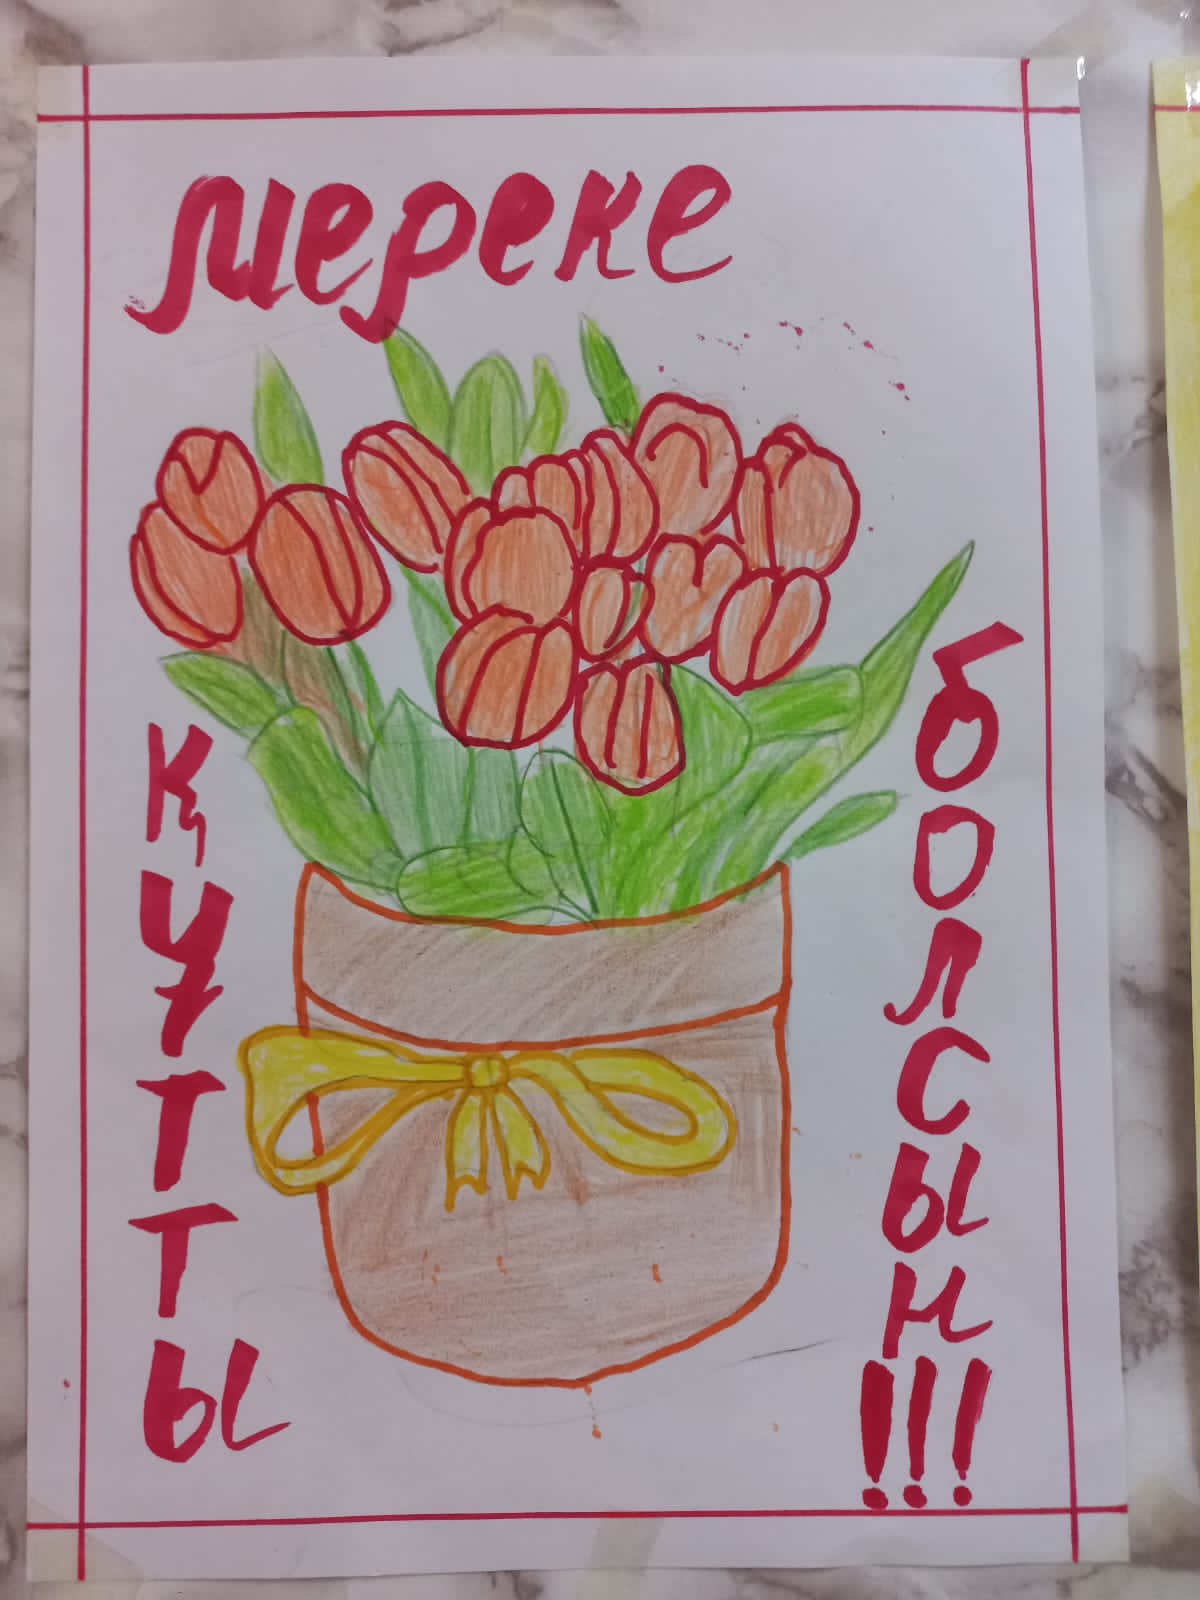 Мереке
Құтты
болсын!!!